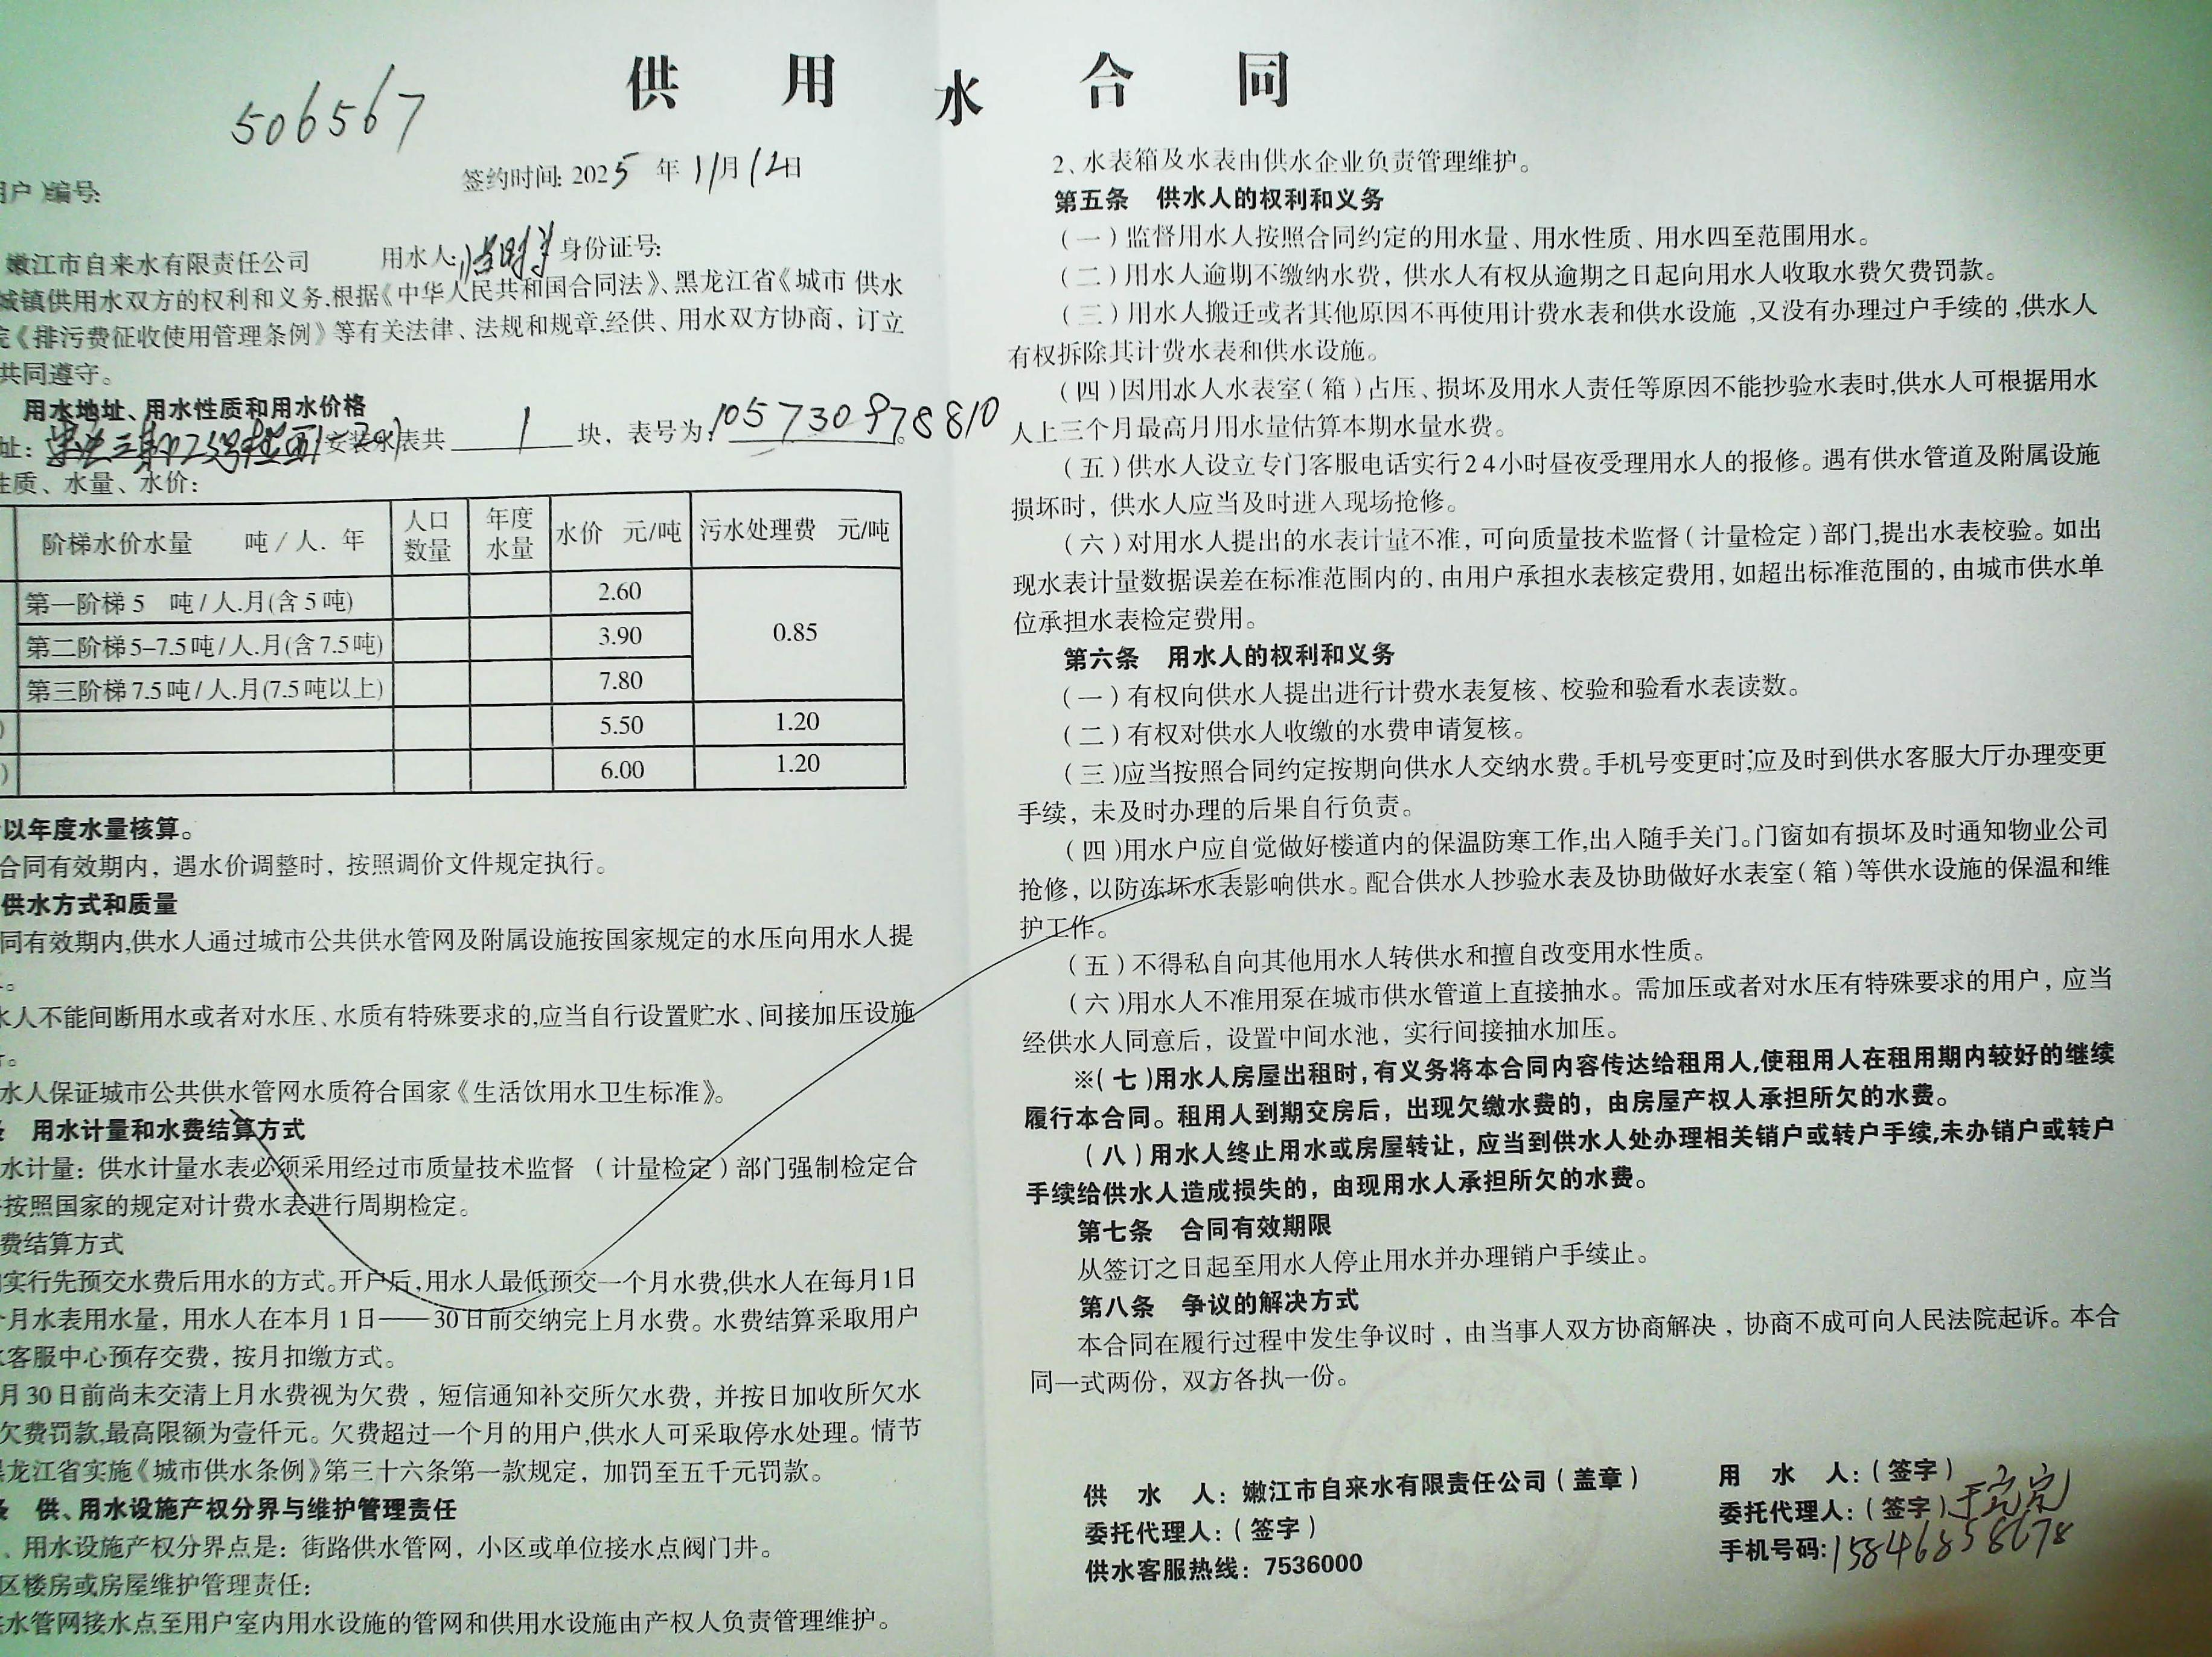 供用水合同
506567
签约时间: 2025 年 11月12日
户)编号:
嫩江市自来水有限责任公司 用水人: 身份证号:
城镇供用水双方的权利和义务,根据《中华人民共和国合同法》、黑龙江省《城市 供水
《排污费征收使用管理条例》等有关法律、法规和规章,经供、用水双方协商，订立
共同遵守。
用水地址、用水性质和用水价格
址: 安装水表共 1 块，表号为: 105730978810。
性质、水量、水价:
阶梯水价水量 吨/人. 年 人口数量 年度水量 水价 元/吨 污水处理费 元/吨
第一阶梯 5 吨/人.月(含 5 吨) 2.60 0.85
第二阶梯 5–7.5 吨/人.月(含 7.5 吨) 3.90
第三阶梯 7.5 吨/人.月(7.5 吨以上) 7.80
) 5.50 1.20
) 6.00 1.20
以年度水量核算。
合同有效期内，遇水价调整时，按照调价文件规定执行。
供水方式和质量
同有效期内,供水人通过城市公共供水管网及附属设施按国家规定的水压向用水人提
。
水人不能间断用水或者对水压、水质有特殊要求的,应当自行设置贮水、间接加压设施
。
水人保证城市公共供水管网水质符合国家《生活饮用水卫生标准》。
用水计量和水费结算方式
水计量：供水计量水表必须采用经过市质量技术监督 （计量检定）部门强制检定合
按照国家的规定对计费水表进行周期检定。
费结算方式
实行先预交水费后用水的方式。开户后,用水人最低预交一个月水费,供水人在每月1日
月水表用水量，用水人在本月 1 日——30 日前交纳完上月水费。水费结算采取用户
客服中心预存交费，按月扣缴方式。
月 30 日前尚未交清上月水费视为欠费，短信通知补交所欠水费，并按日加收所欠水
欠费罚款,最高限额为壹仟元。欠费超过一个月的用户,供水人可采取停水处理。情节
龙江省实施《城市供水条例》第三十六条第一款规定，加罚至五千元罚款。
供、用水设施产权分界与维护管理责任
、用水设施产权分界点是：街路供水管网，小区或单位接水点阀门井。
区楼房或房屋维护管理责任:
水管网接水点至用户室内用水设施的管网和供用水设施由产权人负责管理维护。
2、水表箱及水表由供水企业负责管理维护。
第五条 供水人的权利和义务
（一）监督用水人按照合同约定的用水量、用水性质、用水四至范围用水。
（二）用水人逾期不缴纳水费，供水人有权从逾期之日起向用水人收取水费欠费罚款。
（三）用水人搬迁或者其他原因不再使用计费水表和供水设施 ,又没有办理过户手续的 ,供水人
有权拆除其计费水表和供水设施。
（四）因用水人水表室（箱）占压、损坏及用水人责任等原因不能抄验水表时,供水人可根据用水
人上三个月最高月用水量估算本期水量水费。
（五）供水人设立专门客服电话实行24小时昼夜受理用水人的报修。遇有供水管道及附属设施
损坏时，供水人应当及时进入现场抢修。
（六）对用水人提出的水表计量不准，可向质量技术监督（计量检定）部门,提出水表校验。如出
现水表计量数据误差在标准范围内的，由用户承担水表核定费用，如超出标准范围的，由城市供水单
位承担水表检定费用。
第六条 用水人的权利和义务
（一）有权向供水人提出进行计费水表复核、校验和验看水表读数。
（二）有权对供水人收缴的水费申请复核。
（三）应当按照合同约定按期向供水人交纳水费。手机号变更时;应及时到供水客服大厅办理变更
手续，未及时办理的后果自行负责。
（四）用水户应自觉做好楼道内的保温防寒工作,出入随手关门。门窗如有损坏及时通知物业公司
抢修，以防冻坏水表影响供水。配合供水人抄验水表及协助做好水表室（箱）等供水设施的保温和维
护工作。
（五）不得私自向其他用水人转供水和擅自改变用水性质。
（六）用水人不准用泵在城市供水管道上直接抽水。需加压或者对水压有特殊要求的用户，应当
经供水人同意后，设置中间水池，实行间接抽水加压。
※（七）用水人房屋出租时，有义务将本合同内容传达给租用人,使租用人在租用期内较好的继续
履行本合同。租用人到期交房后，出现欠缴水费的，由房屋产权人承担所欠的水费。
（八）用水人终止用水或房屋转让，应当到供水人处办理相关销户或转户手续,未办销户或转户
手续给供水人造成损失的，由现用水人承担所欠的水费。
第七条 合同有效期限
从签订之日起至用水人停止用水并办理销户手续止。
第八条 争议的解决方式
本合同在履行过程中发生争议时，由当事人双方协商解决，协商不成可向人民法院起诉。本合
同一式两份，双方各执一份。
供 水 人：嫩江市自来水有限责任公司（盖章）
委托代理人：（签字）
供水客服热线：7536000
用 水 人：（签字）
委托代理人：（签字）
手机号码: 15846858678